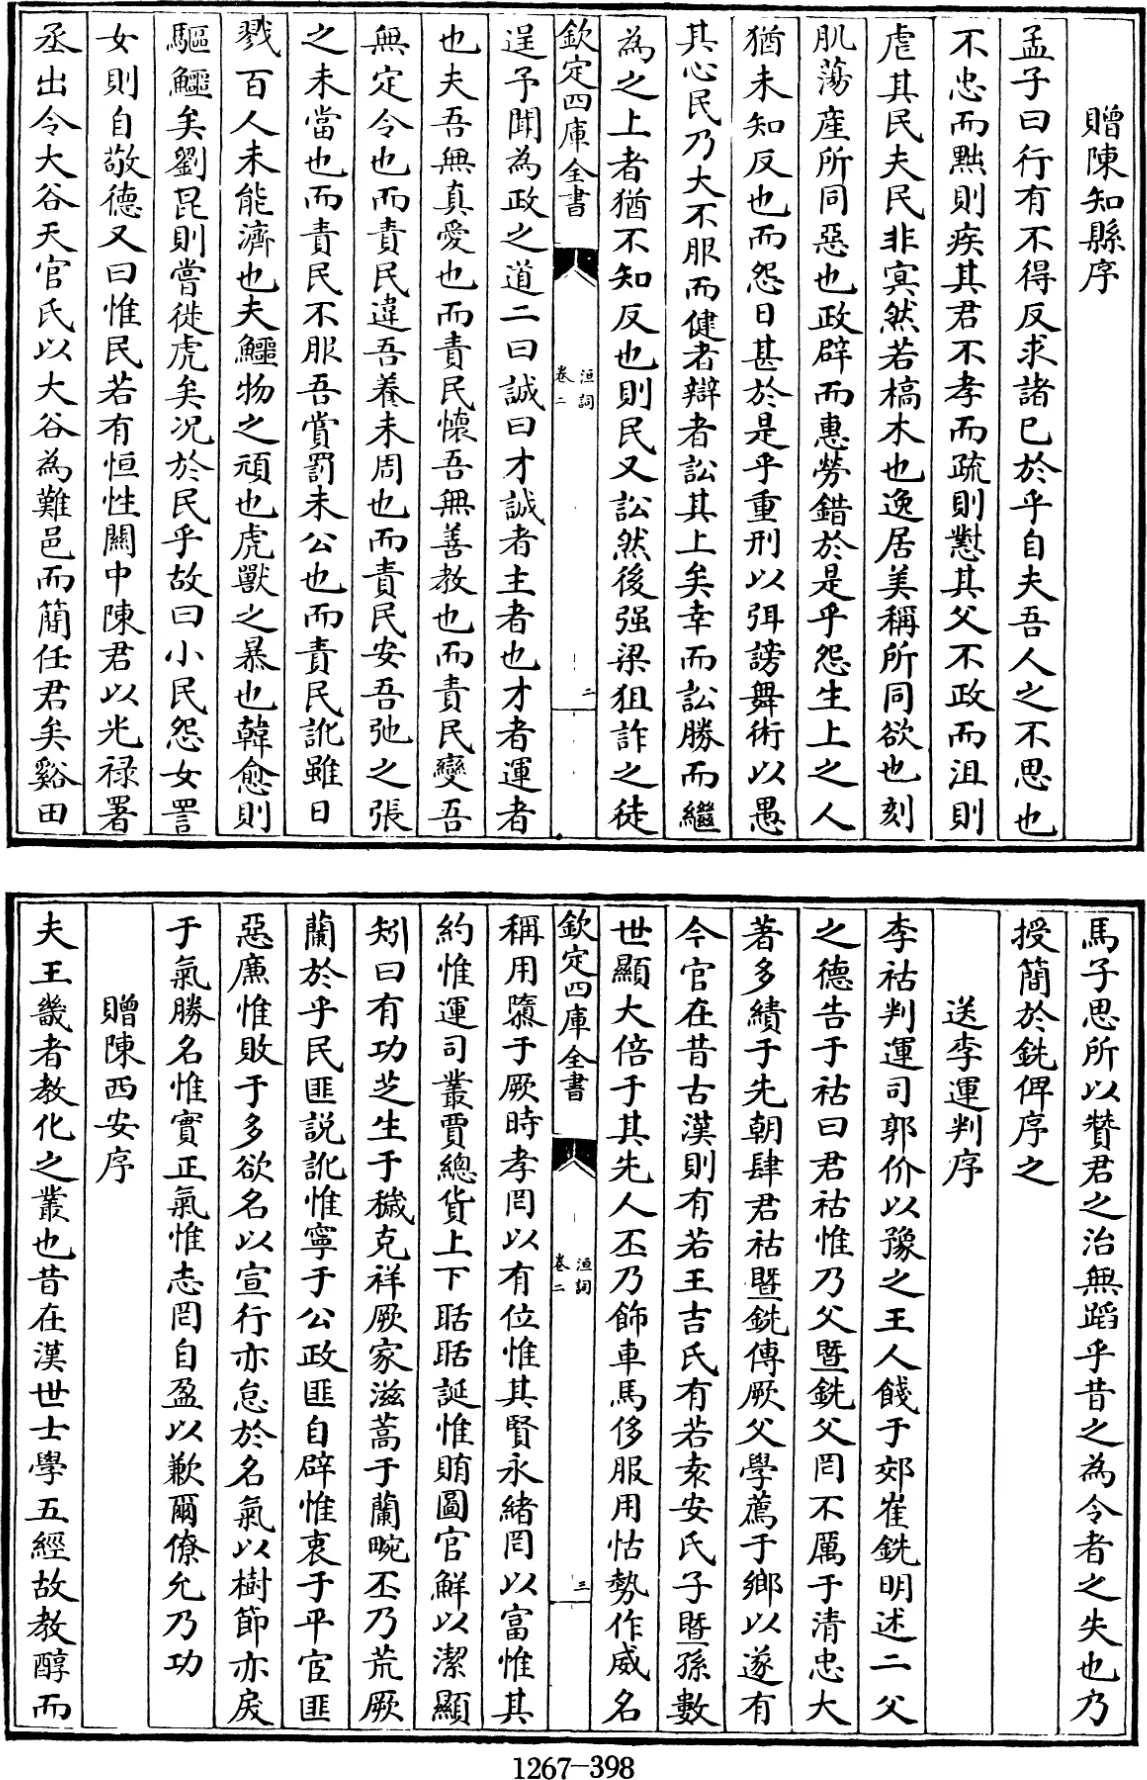 贈陳知縣序
孟子曰行有不得反求諸已於乎自夫吾人之不思也
不忠而黜則疾其君不孝而疏則懟其父不政而沮則
虐其民夫民非寘然若槁木也逸居美稱所同欲也刻
肌蕩産所同惡也政辟而惠勞錯於是乎怨生上之人
猶未知反也而怨日甚於是乎重刑以弭謗舞術以愚
其心民乃大不服而健者辯者訟其上矣幸而訟勝而繼
為之上者猶不知反也則民又訟然後强梁狙詐之徒
欽定四庫全書
洹詞
卷二
二
逞予聞為政之道二曰誠曰才誠者主者也才者運者
也夫吾無真愛也而責民懷吾無善教也而責民變吾
無定令也而責民違吾養未周也而責民安吾弛之張
之未當也而責民不服吾賞罰未公也而責民訛雖日
戮百人未能濟也夫鱷物之頑也虎獸之暴也韓愈則
驅鱷矣劉昆則嘗徙虎矣况於民乎故曰小民怨女詈
女則自敬德又曰惟民若有恒性關中陳君以光禄署
丞出令大谷天官氏以大谷為難邑而簡任君矣谿田
馬子思所以贊君之治無蹈乎昔之為令者之失也乃
授簡於銑俾序之
送李運判序
李祜判運司郭价以豫之王人餞于郊崔銑明述二父
之德告于祜曰君祜惟乃父暨銑父罔不厲于清忠大
著多績于先朝肆君祜暨銑傳厥父學薦于鄉以遂有
今官在昔古漢則有若王吉氏有若袁安氏子暨孫數
世顯大倍于其先人丕乃飾車馬侈服用怙勢作威名
欽定四庫全書
洹詞
卷二
三
稱用隳于厥時孝罔以有位惟其賢永緒罔以富惟其
約惟運司叢賈總貨上下聒聒誕惟賄圖官鮮以潔顯
矧曰有功芝生于穢克祥厥家滋蒿于蘭畹丕乃荒厥
蘭於乎民匪説訛惟寧于公政匪自辟惟衷于平宦匪
惡廉惟敗于多欲名以宣行亦怠於名氣以樹節亦戾
于氣勝名惟實正氣惟志罔自盈以歉爾僚允乃功
贈陳西安序
夫王畿者教化之叢也昔在漢世士學五經故教醇而
1267-398